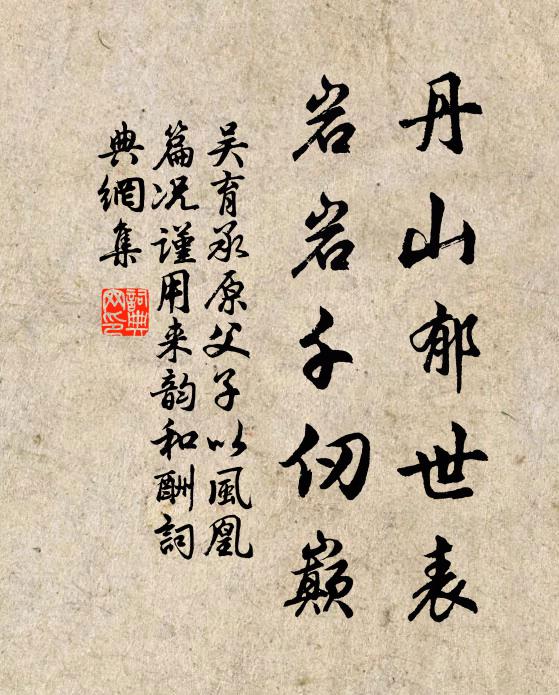 丹山郁世表
岩岩千仞巅
吴育承原父子以風凰
篇况谨用来韵和酬詞
典網集
詞典
网印